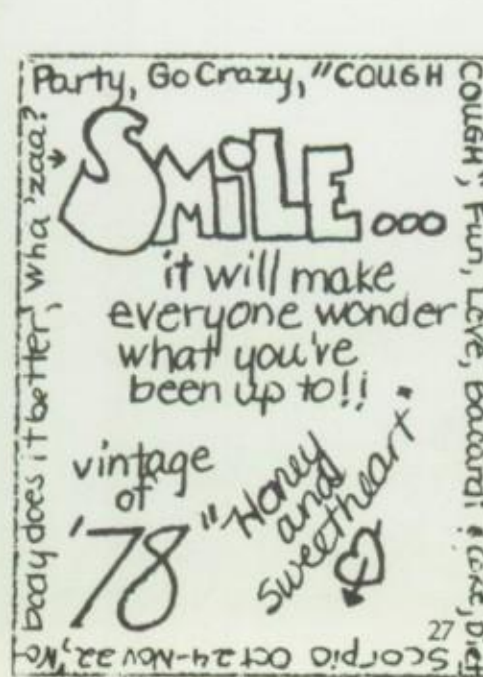 Party, Go Crazy, "COUGH
COUGH", Fun, Love, Bacardi
Diet
Scorpio Oct 24-Nov 22, No
body does it better, wha 'zaa?
SMILE...
it will make
everyone wonder
what you've
been up to!!
vintage
of
'78
"Honey
and
sweetheart"
27